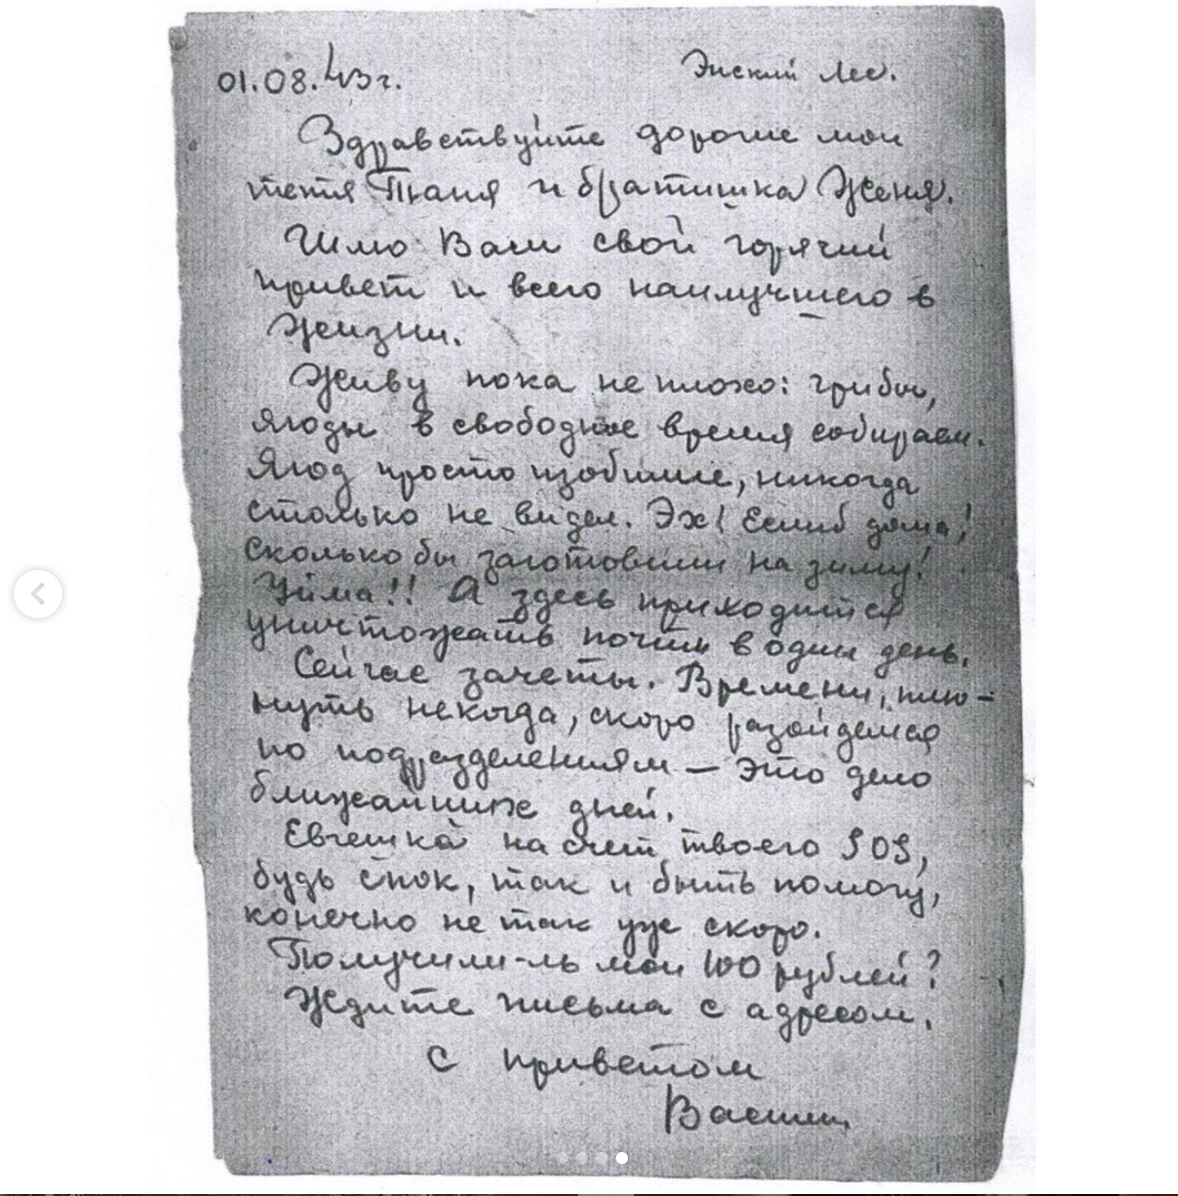 01.08.43г.
Энский лес.
Здравствуйте дорогие мои
тетя Таня и братишка Женя.
Шлю Вам свой горячий
привет и всего наилучшего в
жизни.
Живу пока не плохо: грибы,
ягоды в свободное время собираем.
Ягод просто изобилие, никогда
столько не видел. Эх! Еслиб дома!
Сколько бы заготовили на зиму!
Уйма!! А здесь приходится
уничтожать почти в один день.
Сейчас зачеты. Времени, плю-
нуть некогда, скоро разойдемся
по подразделениям – это дело
ближайших дней.
Евгешка насчет твоего SOS,
будь спок, так и быть помогу,
конечно не так уж скоро.
Получили-ль мои 100 рублей?
Ждите письма с адресом.
С приветом